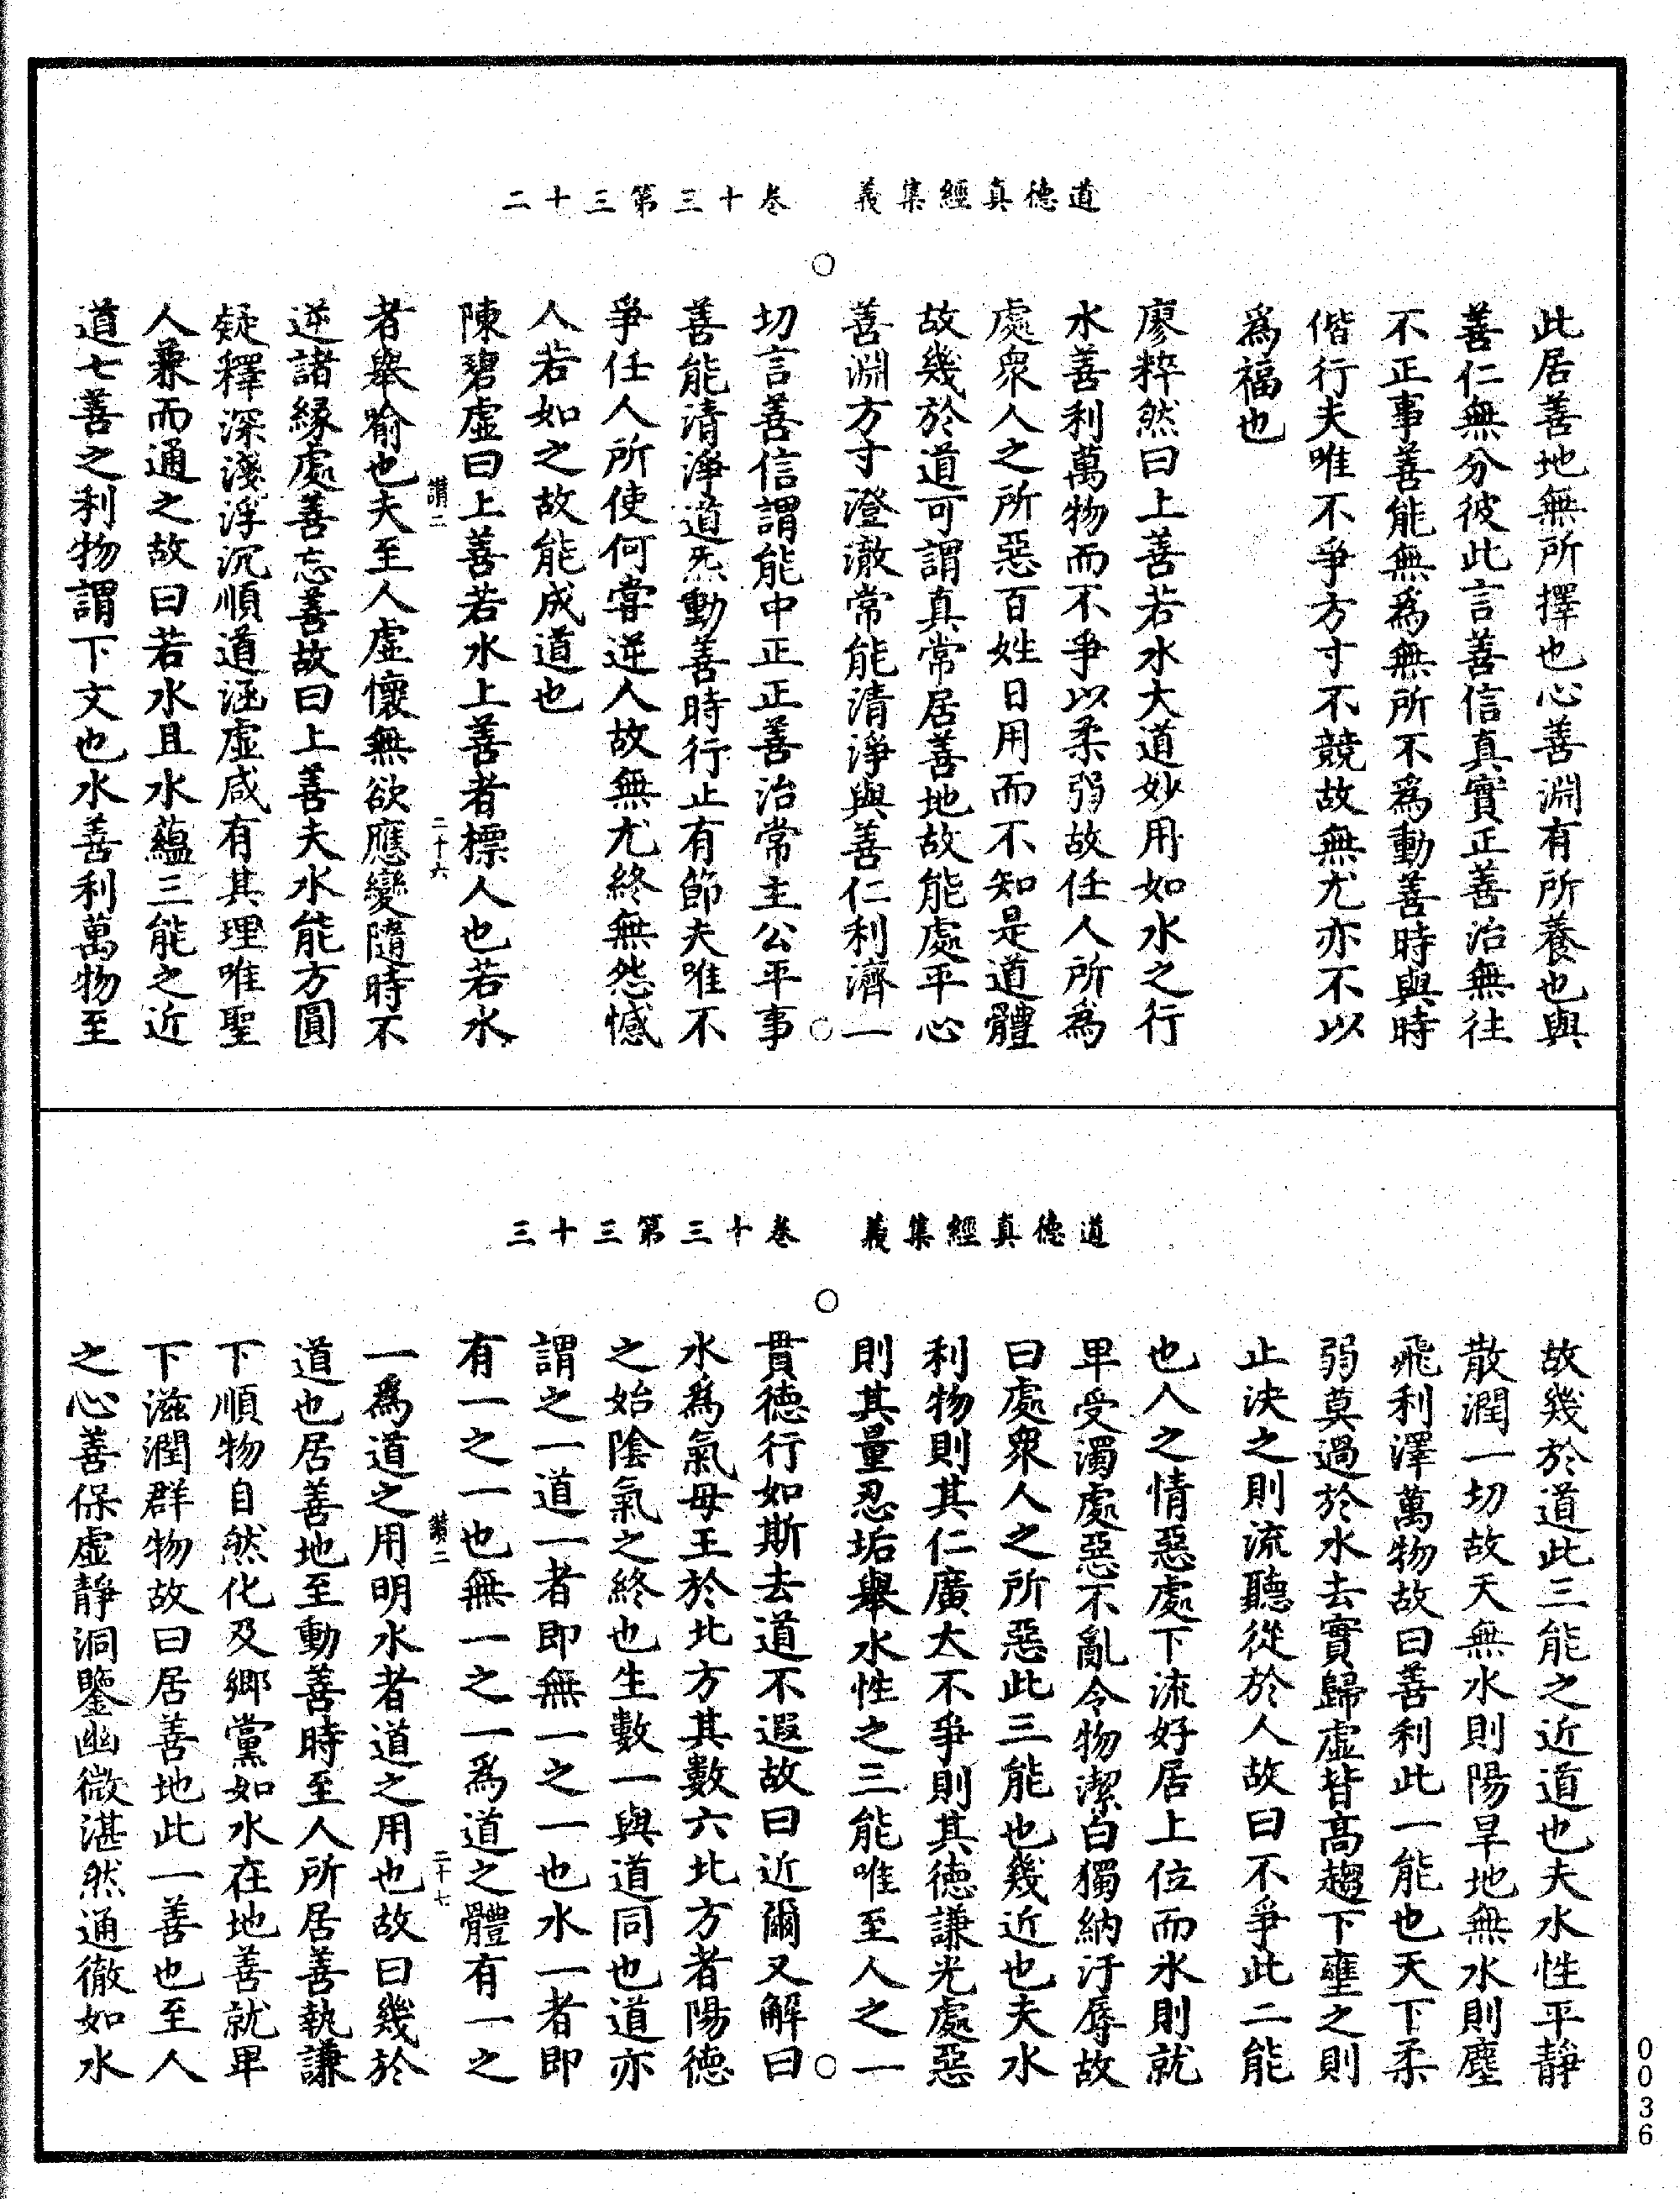 道德真經集義　卷十三第三十二
此居善地無所擇也心善淵有所養也與
善仁無分彼此言善信真實正善治無往
不正事善能無為無所不為動善時與時
偕行夫唯不爭方寸不競故無尤亦不以
為福也
廖粹然曰上善若水大道妙用如水之行
水善利萬物而不爭以柔弱故任人所為
處眾人之所惡百姓日用而不知是道體
故幾於道可謂真常居善地故能處平心
善淵方寸澄澈常能清淨與善仁利濟一
切言善信謂能中正正善治常主公平事
善能清淨道炁動善時行止有節夫唯不
爭任人所使何嘗逆人故無尤終無怨憾
人若如之故能成道也
陳碧虛曰上善若水上善者標人也若水
二十六
者舉喻也夫至人虛懷無欲應變隨時不
逆諸緣處善忘善故曰上善夫水能方圓
疑釋深淺浮沉順道涵虛咸有其理唯聖
人兼而通之故曰若水且水蘊三能之近
道七善之利物謂下文也水善利萬物至
道德真經集義　卷十三第三十三
故幾於道此三能之近道也夫水性平靜
散潤一切故天無水則陽旱地無水則塵
飛利澤萬物故曰善利此一能也天下柔
弱莫過於水去實歸虛背高趨下壅之則
止決之則流聽從於人故曰不爭此二能
也人之情惡處下流好居上位而水則就
卑受濁處惡不亂令物潔白獨納汙辱故
曰處眾人之所惡此三能也幾近也夫水
利物則其仁廣大不爭則其德謙光處惡
則其量忍垢舉水性之三能唯至人之一
貫德行如斯去道不遐故曰近爾又解曰
水為氣母王於北方其數六北方者陽德
之始陰氣之終也生數一與道同也道亦
謂之一道一者即無一之一也水一者即
有一之一也無一之一為道之體有一之
二十七
一為道之用明水者道之用也故曰幾於
道也居善地至動善時至人所居善執謙
下順物自然化及鄉黨如水在地善就卑
下滋潤群物故曰居善地此一善也至人
之心善保虛靜洞鑒幽微湛然通徹如水
0036